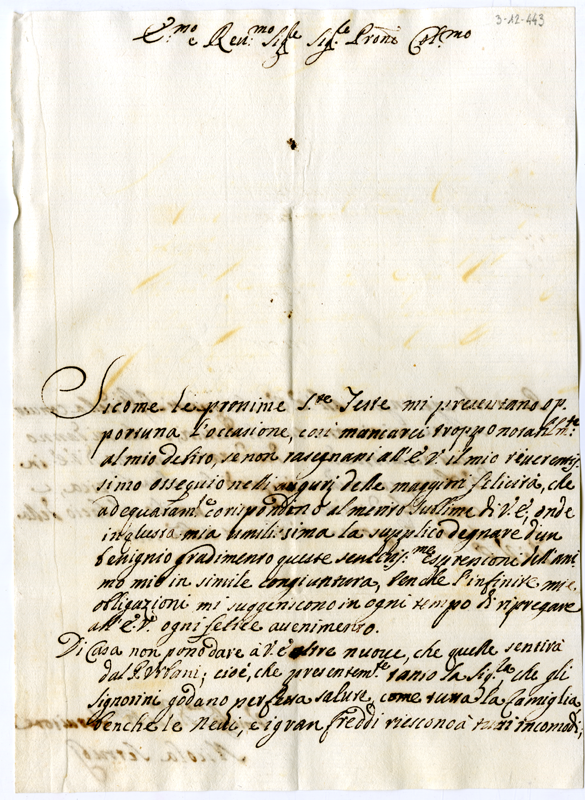 3-12-443
E.mo e Reu.mo Sig.re Sig.re Prone Col.mo
Sicome le prossime S.te Feste mi presentano op-
portuna l'occasione, così mancarei troppo notabilm.te
al mio debito, se non rasegnassi all'E.V. il mio riuerentis-
simo ossequio negli augurij delle maggiori felicità, che
adeguatam.te corispondono al merito sublime di V.E., onde
in questa mia umilissima la supplico degnare d'un
benignio gradimento queste sincerissime espressioni dell'ani-
mo mio in simile congiuntura, benche l'infinite mie
obligazioni mi suggeriscono in ogni tempo di ripregare
all'E.V. ogni felice auenimento.
Di Casa non posso dare à V.E. altre nuoue, che quelle sentirà
dal P. Vrbani; cioè, che presentem.te tanto la Sig.ra, che gli
Signorini godano perfetta salute, come tutta la famiglia,
benche le neui, e i gran freddi riescono à tutti incomodi;